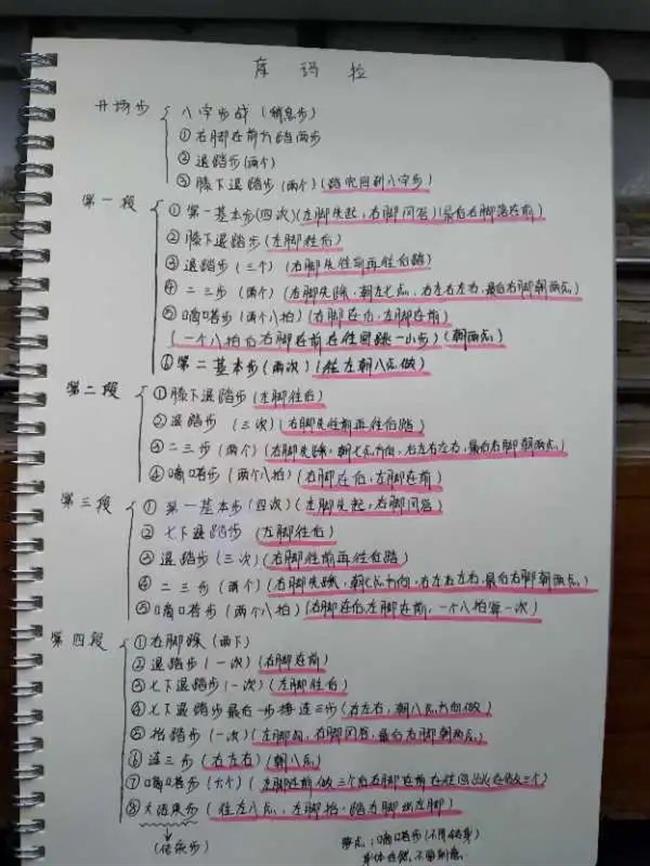 库玛拉
开场步 八字步战 (稍息步)
①右脚在前方踏两步
②退踏步(两个)
③膝下退踏步(两个)(踏完回到八字步)
第一段 ①第一基本步(四次)(左脚先起,右脚回答)(最后右脚落在前)
②膝下退踏步(左脚往后)
③退踏步(三个)(右脚先往前再往后踏)
④二三步(两个)(右脚先踩,朝左七点,右左右左右,最后右脚朝两点)
⑤嘀嗒步(两个八拍)(右脚在后,左脚在前)
(一个八拍后右脚在前在往回跳一小步)(朝两点)
⑥第二基本步(两次)(往左朝八点做)
第二段 ①膝下退踏步(左脚往后)
②退踏步 (三次)(右脚先往前再往后踏)
③二三步(两个)(右脚先踩,朝七点方向,右左右左右,最后右脚朝两点)
④嘀嗒步(两个八拍)(右脚在后,左脚在前)
第三段 ①第一基本步(四次)(左脚先起,右脚回答)
②七下退踏步 (左脚往后)
③退踏步(三次)(右脚往前再往后踏)
④二三步(两个)(右脚先踩,朝七点方向,右左右左右,最后右脚朝两点)
⑤嘀嗒步(两个八拍)(右脚在后左脚在前,一个八拍算一次)
第四段 ①右脚踩(两下)
②退踏步(一次)(右脚在前)
③七下退踏步(一次)(左脚往后)
④七下退踏步最后一步接连三步(右左右,朝八点方向做)
⑤抬踏步(一次)(左脚勾,右脚回答,最后右脚朝两点)
⑥连三步(右左右)(朝八点)
⑦嘀嗒步(六个)(左脚在前做三个后右脚在前在往做三个)
⑧大结束步(往左八点,左脚抬,踏右脚出左脚)
(结束步)
要点:嘀嗒步(不用转身)
身体自然,不用刻意